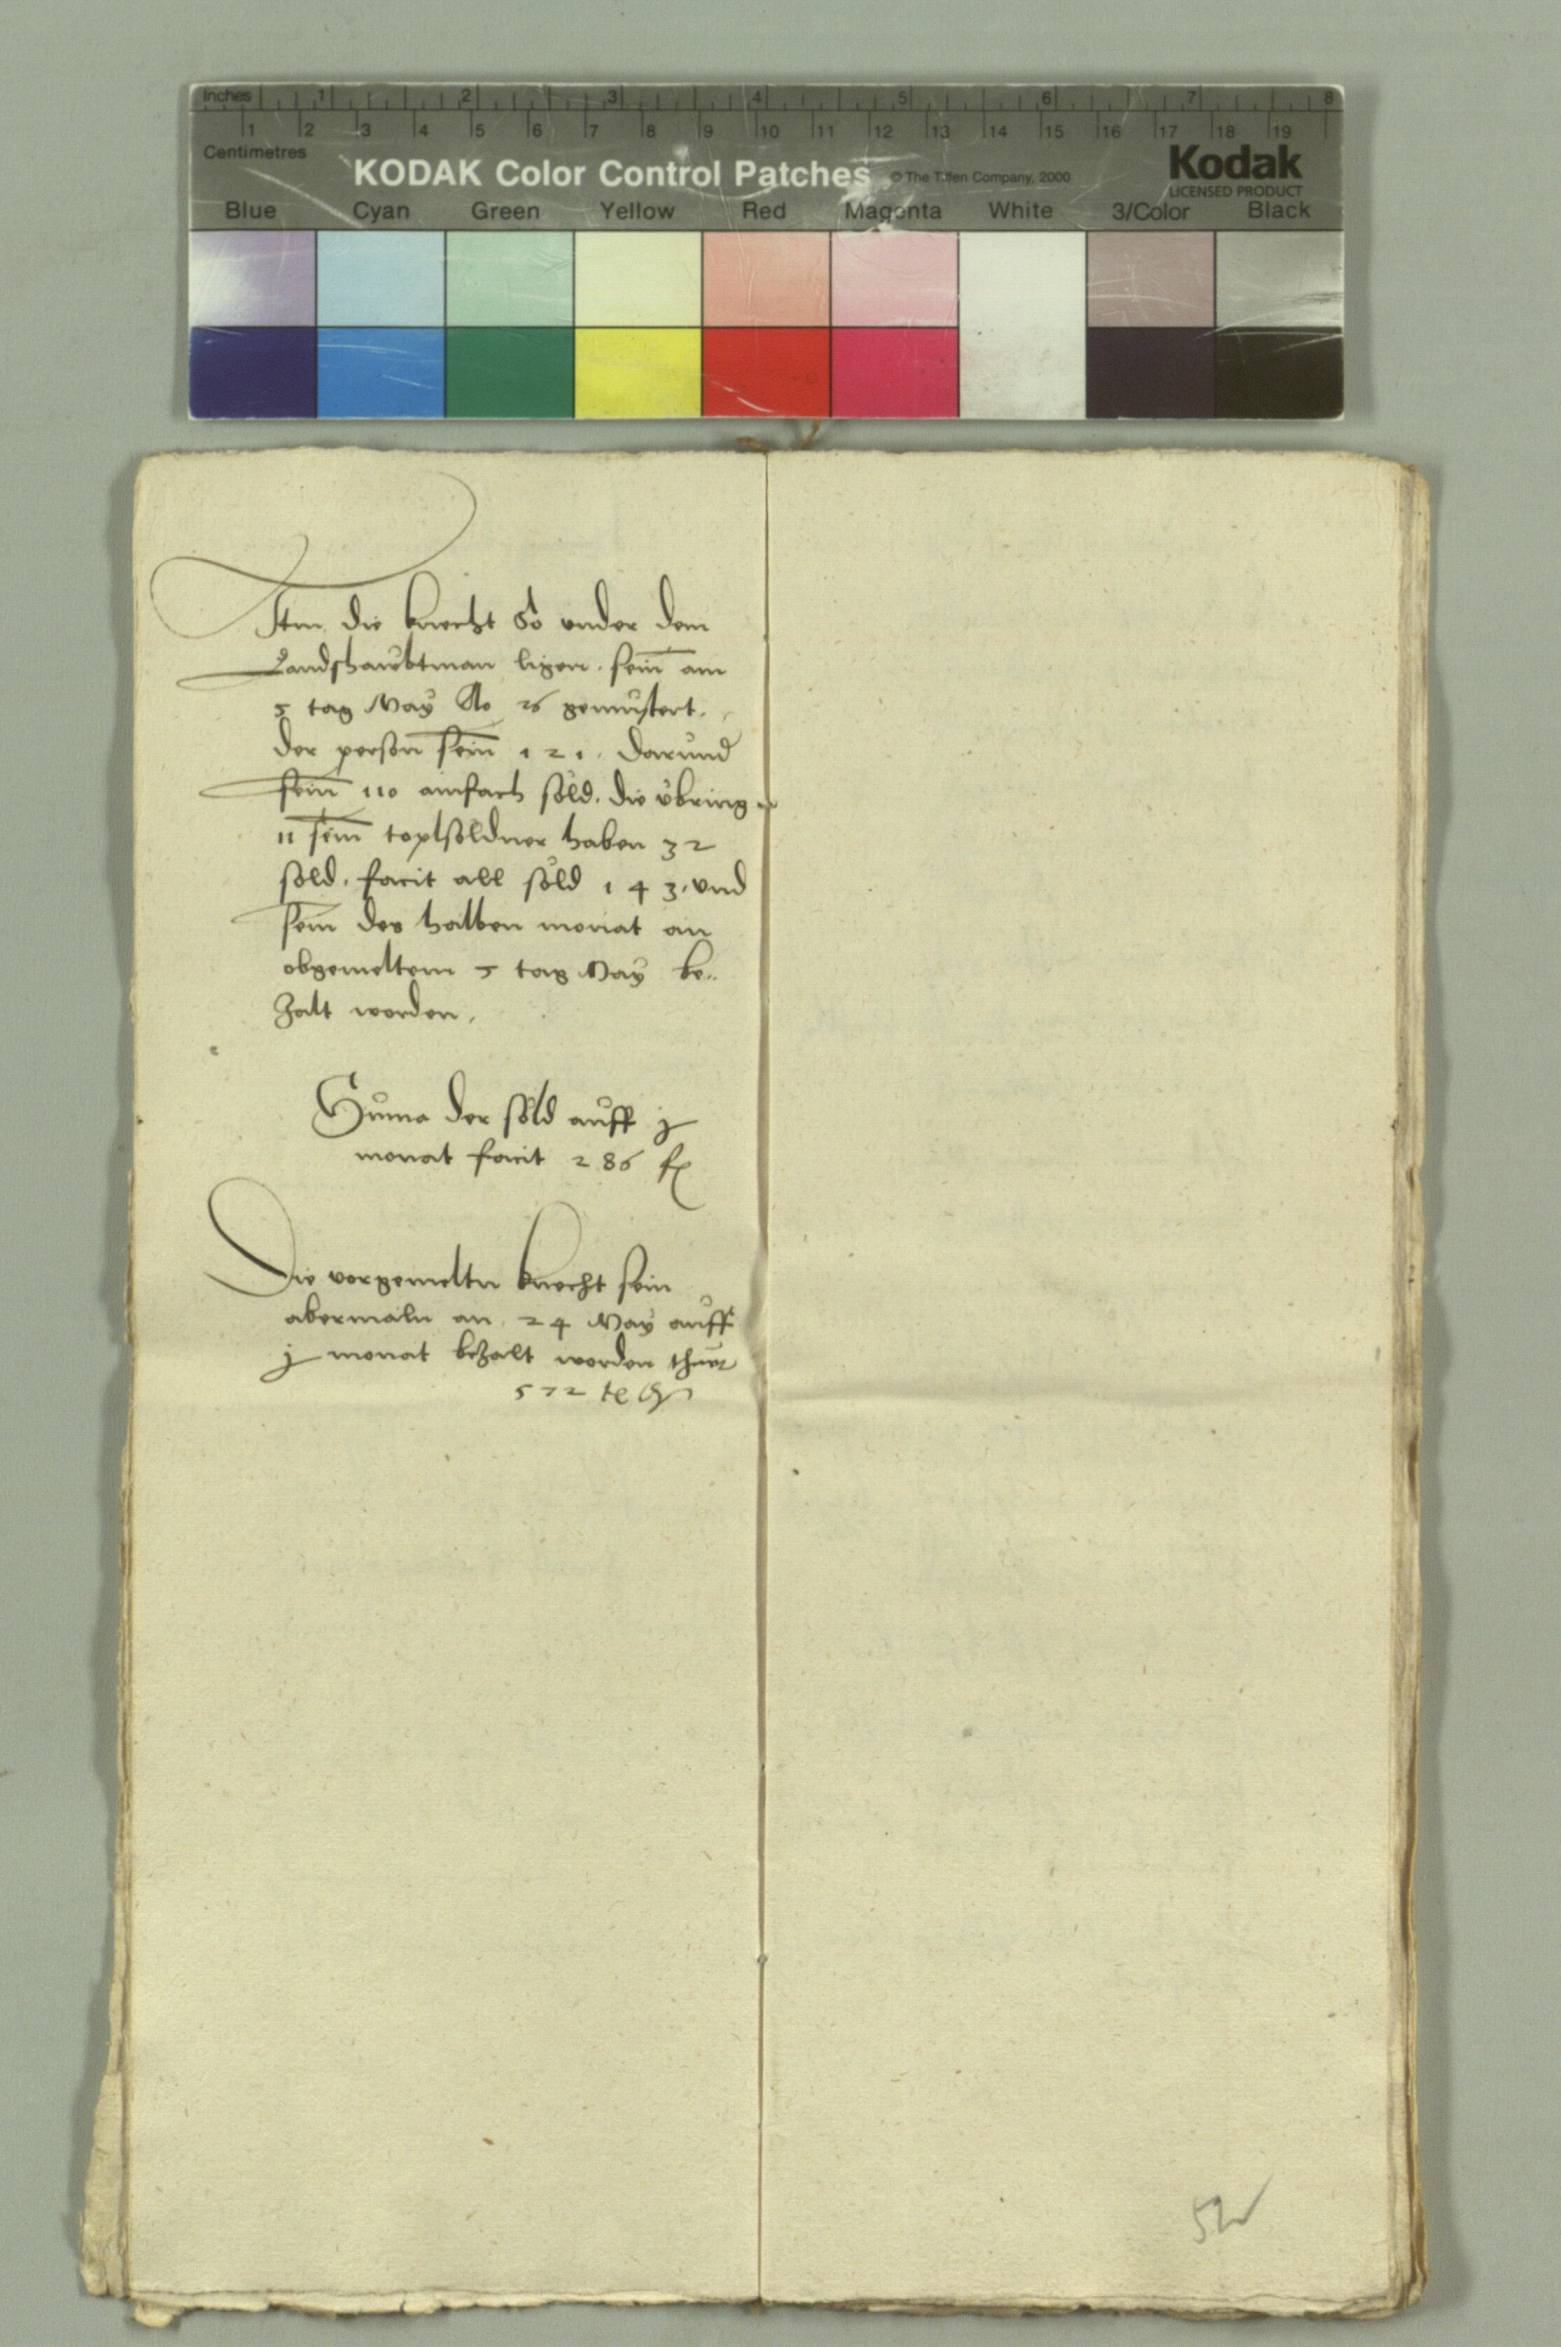 Inches 1 2 3 4 5 6 7 8
1 2 3 4 5 6 7 8 9 10 11 12 13 14 15 16 17 18 19
Centimetres
KODAK Color Control Patches © The Tiffen Company, 2000 Kodak
LICENSED PRODUCT
Blue Cyan Green Yellow Red Magenta White 3/Color Black
Itm die knecht so under dem
Landshaubtman ligen. sein am
5 tag May Ao 26 gemustert.
der person sein 121. darund
sein 110 ainfach söld. die übring
11 sein toplsöldner haben 32
söld. facit all söld 143. und
sein des halben monat an
obgemeltem 5 tag May be..
zalt worden.
Suma der söld auff j
monat facit 286 f
Die vorgemeltn knecht sein
abermaln an 24 May auff
j monat bezalt worden thuet
572
52